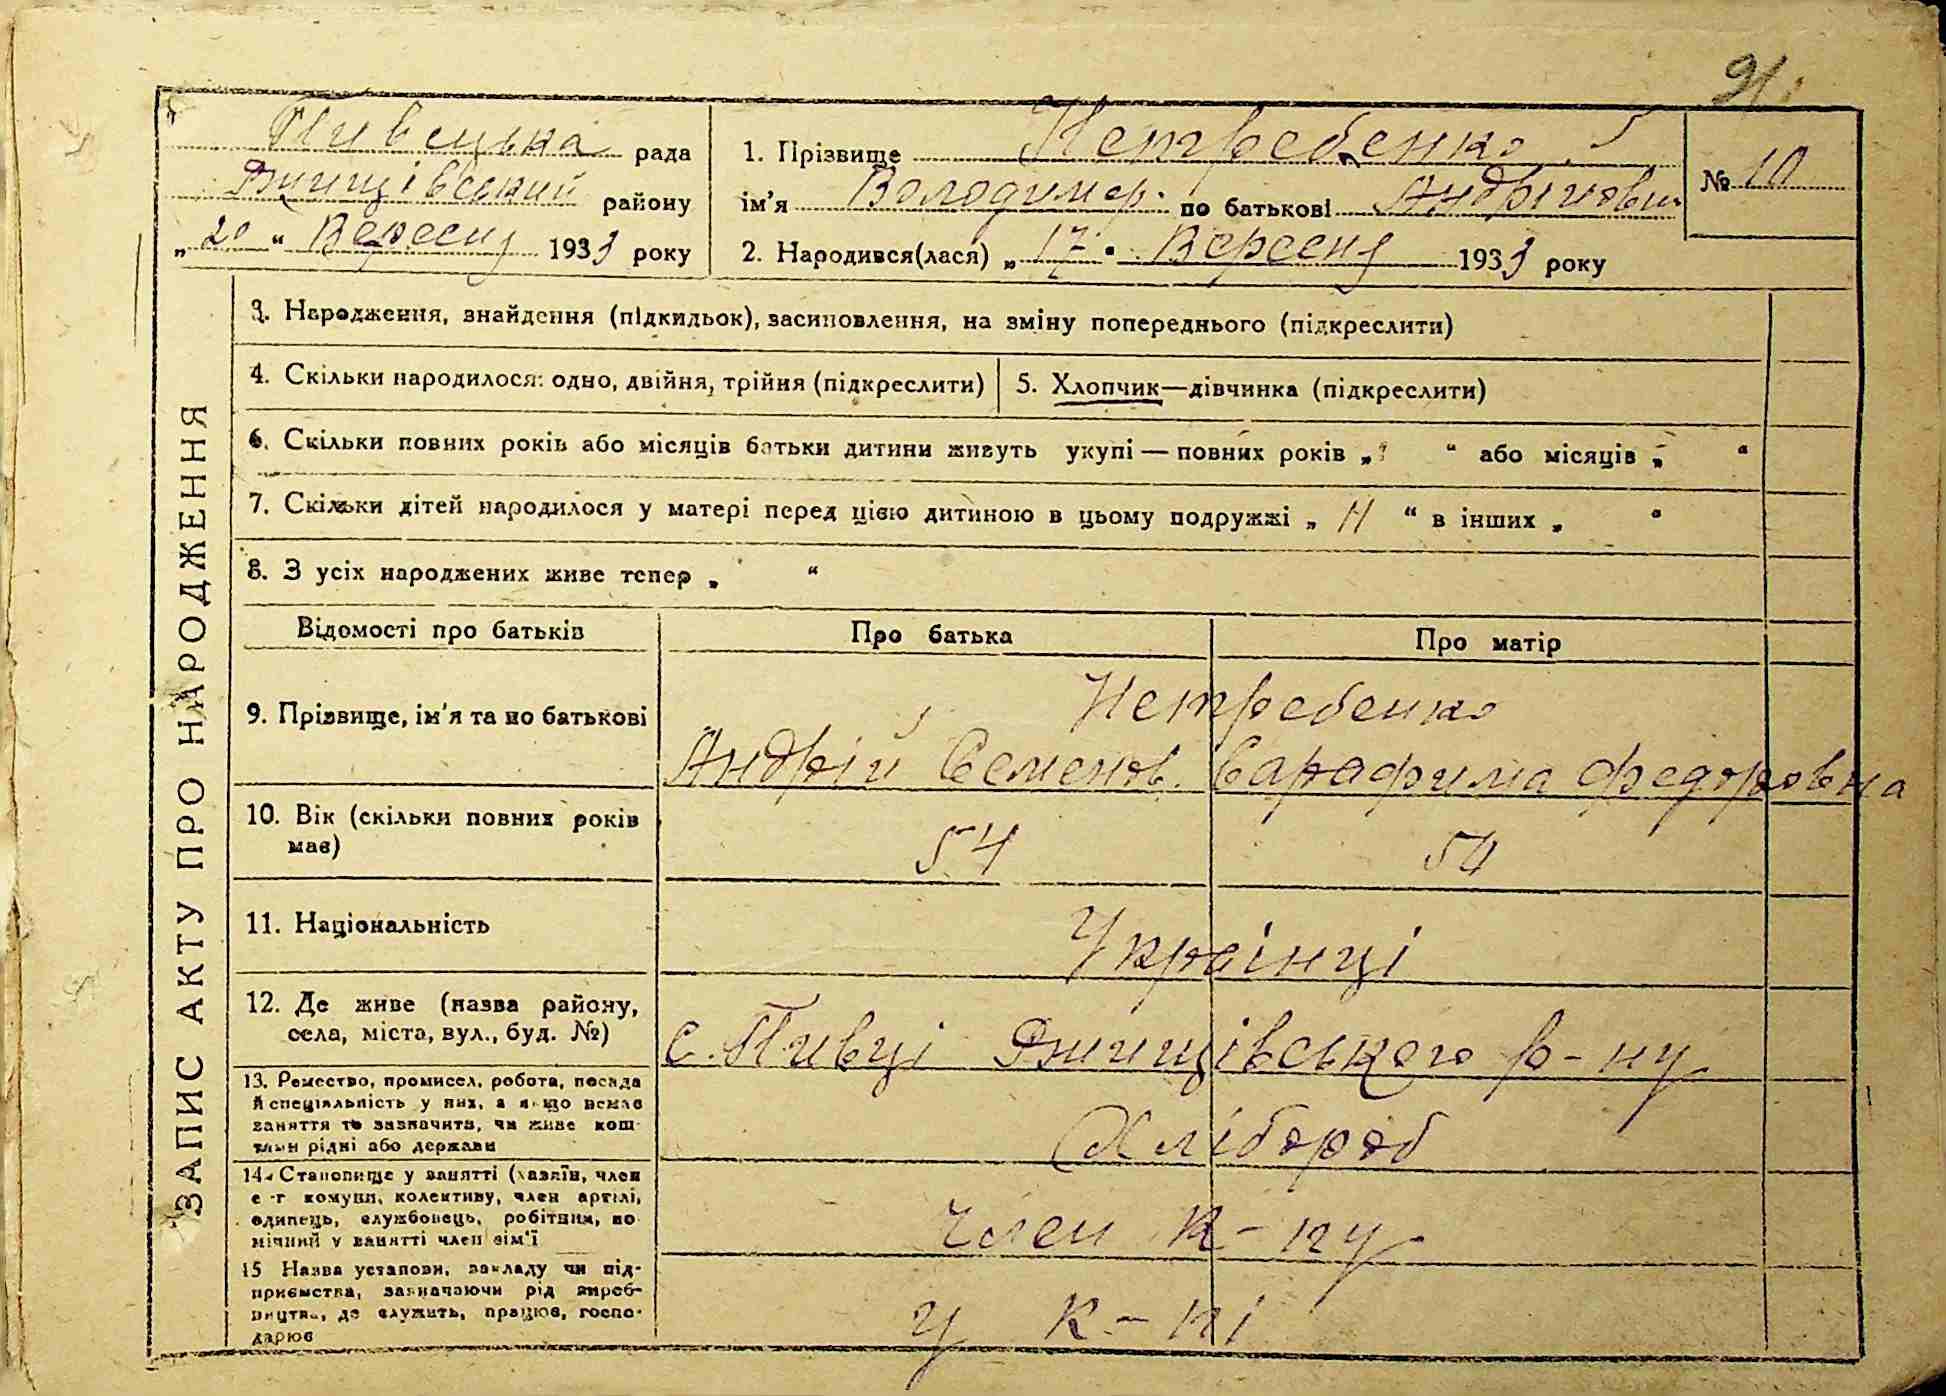 91
Пивецька рада
Ржищівський району
„20“ Вересня 1933 року
1. Прізвище Нетребенко
ім'я Володимер по батькові Андріїович
2. Народився(лася) „17“ Вересня 1933 року
№ 10
ЗАПИС АКТУ ПРО НАРОДЖЕННЯ
3. Народження, знайдення (підкидьок), засиновлення, на зміну попереднього (підкреслити)
4. Скільки народилося: одно, двійня, трійня (підкреслити)
5. Хлопчик—дівчинка (підкреслити)
6. Скільки повних років або місяців батьки дитини живуть укупі — повних років „ “ або місяців „ “
7. Скільки дітей народилося у матері перед цією дитиною в цьому подружжі „ “ в інших „ “
8. З усіх народжених живе тепер „ “
Відомості про батьків
Про батька
Про матір
9. Прізвище, ім'я та по батькові
Нетребенко
Андрій Семенов. Сарафима Федоровна
10. Вік (скільки повних років
має)
54
54
11. Національність
Українці
12. Де живе (назва району,
села, міста, вул., буд. №)
с. Пивці Ржищівського р-ну
13. Ремество, промисел, робота, посада
й спеціяльність у них, а якщо немає
заняття то зазначити, чи живе кош-
тами рідні або держави
Хлібороб
14. Становище у занятті (хазяїн, член
с-г комуни, колективу, член артілі,
одинець, службовець, робітник, по-
мічний у занятті член сім'ї
член к-пу
15 Назва установи, закладу чи під-
приємства, зазначаючи рід вироб-
ництва, де служить, працює, госпо-
дарює
у к-пі